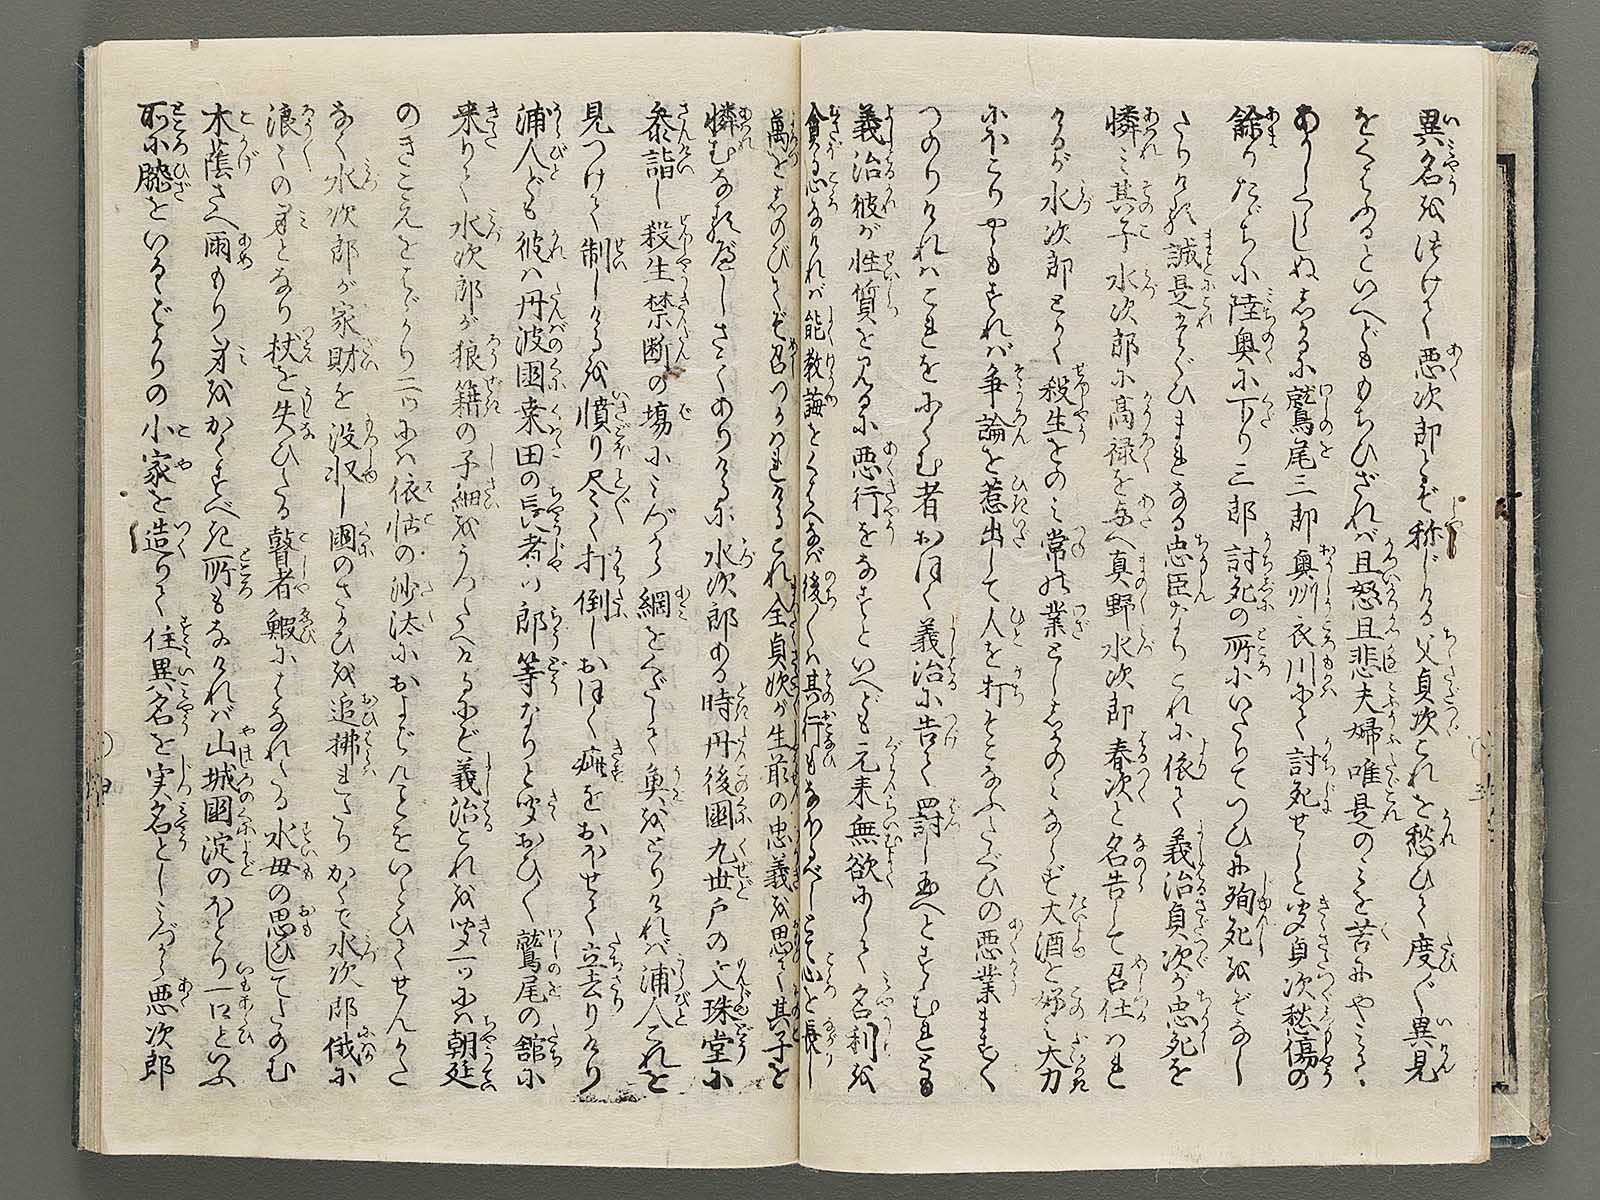 異名をつけて悪次郎とぞ称じける父貞次これを愁ひて度〻異見
をくはふるといへどももちひざれば且怒且悲夫婦唯是のみを苦にやみき
ありしたしぬしかるに鷲尾三郎奥州衣川にて討死せしと聞貞次愁傷の
餘りたゞちに陸奥に下り三郎討死の所にいたりてつひに殉死をぞなし
たりける誠是たぐひまれなる忠臣なりこれに依て義治貞次が忠死を
憐み其子水次郎に高禄を与へ真野水次郎春次と名告して召仕はれ
けるが水次郎とかく殺生をのみ常の業としあるのみならず大酒を好み大力
にほこりやゝもすれば争論を惹出して人を打そこなふたぐひの悪業ますます
つのりければこれをにくむ者おほく義治に告て罰し玉へとすゝむれども
義治彼が性質を見るに悪行をなすといへども元来無欲にして名利を
貪る心なければ能教誨をくはへなば後〻は其行もなほるべしとて心を長し
萬をしのびてぞ召つかはれけるこれ全貞次が生前の忠義を思て其子を
憐むなるべしさてありけるに水次郎ある時丹後國九世戸の文珠堂に
参詣し殺生禁断の場にみづから網をくだして魚をとりければ浦人これを
見つけて制しけるを憤り尽く打倒しおほく疵をおはせて立去りけり
浦人ども彼は丹波國桒田の長者の郎等なりと聞おひ〳〵鷲尾の舘に
来りて水次郎が狼籍の子細をうつたへけるにぞ義治これを聞一つには朝廷
のきこえをはゞかり二つには依怙の沙汰におよばんことをいとひてせんかた
なく水次郎が家財を没収し國のさかひを追拂れたりかくて水次郎俄に
浪〻の身となり杖を失ひたる瞽者鰕にはなれたる水母の思ひしてたのむ
木蔭さへ雨もり身をかくすべき所もなければ山城國淀のほとり一口といふ
所に膝をいるゝばかりの小家を造りて住異名を実名としみづから悪次郎